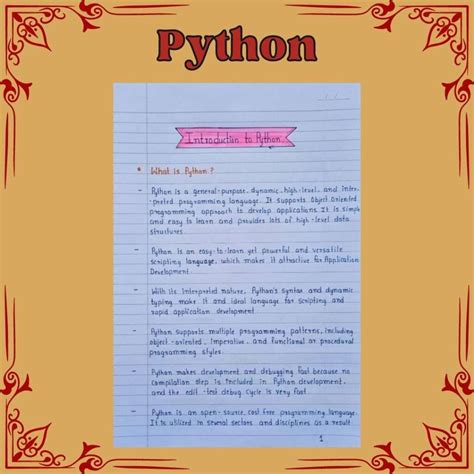 Python
Introduction to Python
What is Python ?
- Python is a general-purpose, dynamic, high-level, and inter-
-preted programming language. It supports Object Oriented
programming approach to develop applications. It is simple
and easy to learn and provides lots of high-level data
structures.
- Python is an easy-to-learn yet powerful and versatile
scripting language, which makes it attractive for Application
Development.
- With its interpreted nature, Python's syntax and dynamic
typing make it and ideal language for scripting and
rapid application development
- Python supports multiple programming patterns, including
object-oriented, Imperative, and functional or procedural
programming styles.
- Python makes development and debugging fast because no
compilation step is included in Python development,
and the edit-test debug cycle is very fast.
- Python is an open-source, cost free programming language.
It is utilized in several sectors and disciplines as a result
1